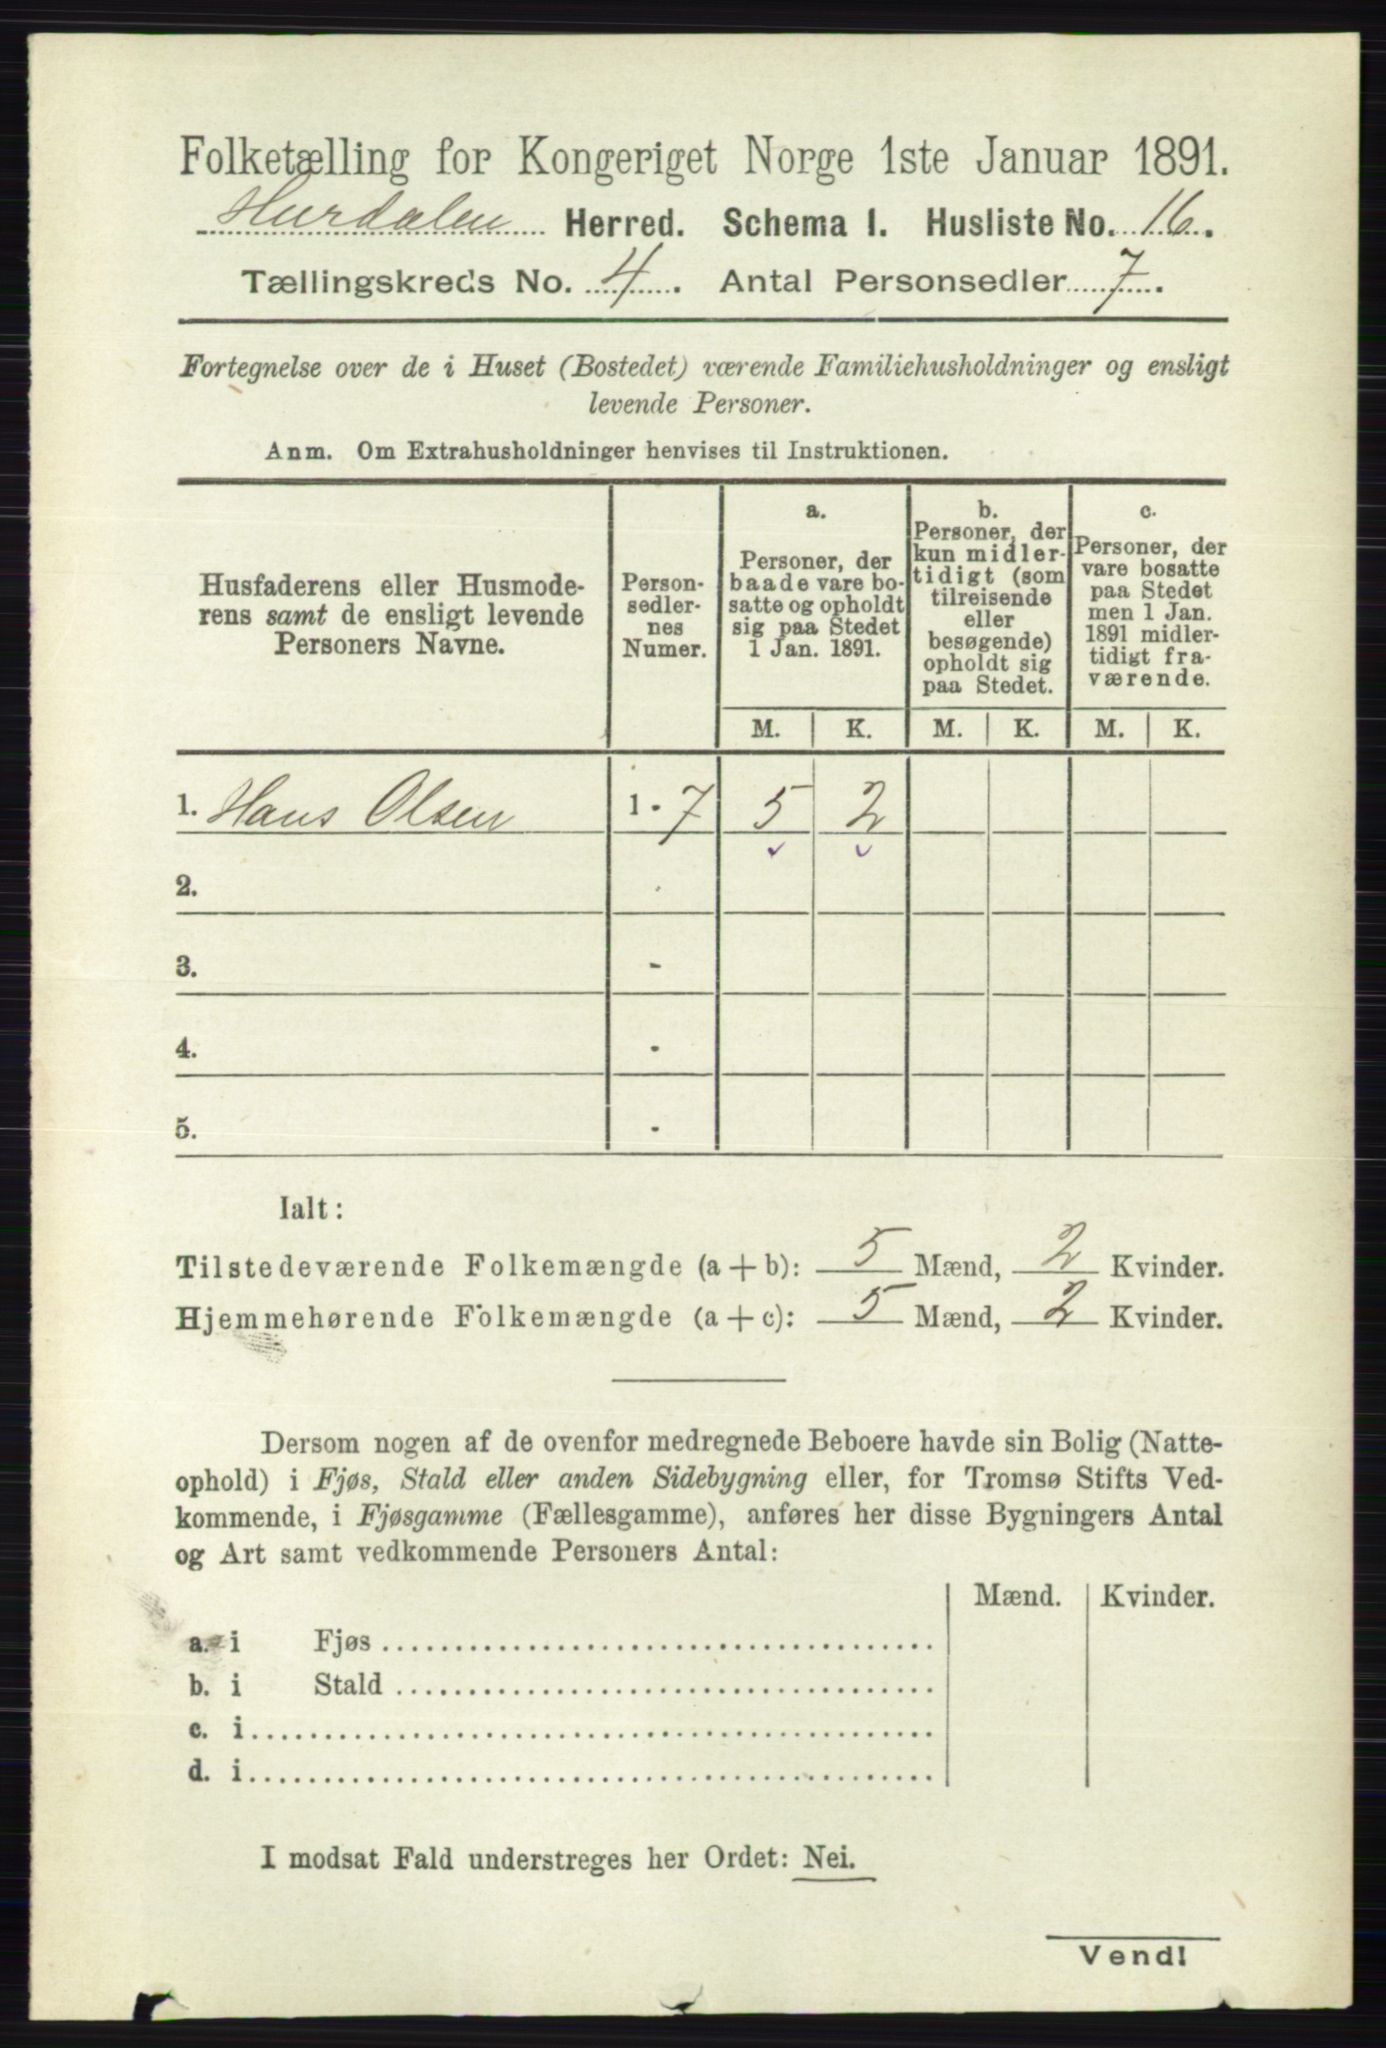 Folketælling for Kongeriget Norge 1ste Januar 1891.
Hurdalen Herred. Schema I. Husliste No. 16.
Tællingskreds No. 4. Antal Personsedler 7.
Fortegnelse over de i Huset (Bostedet) værende Familiehusholdninger og ensligt
levende Personer.
Anm. Om Extrahusholdninger henvises til Instruktionen.
Husfaderens eller Husmode-
rens samt de ensligt levende
Personers Navne.
Person-
sedler-
nes
Numer.
a.
Personer, der
baade vare bo-
satte og opholdt
sig paa Stedet
1 Jan. 1891.
b.
Personer, der
kun midler-
tidigt (som
tilreisende
eller
besøgende)
opholdt sig
paa Stedet.
c.
Personer, der
vare bosatte
paa Stedet
men 1 Jan.
1891 midler-
tidigt fra-
værende.
M. K. M. K. M. K.
1. Hans Olsen 1 - 7 5 2
2.
3. -
4. -
5. -
Ialt:
Tilstedeværende Folkemængde (a + b): 5 Mænd, 2 Kvinder.
Hjemmehørende Folkemængde (a + c): 5 Mænd, 2 Kvinder.
Dersom nogen af de ovenfor medregnede Beboere havde sin Bolig (Natte-
ophold) i Fjøs, Stald eller anden Sidebygning eller, for Tromsø Stifts Ved-
kommende, i Fjøsgamme (Fællesgamme), anføres her disse Bygningers Antal
og Art samt vedkommende Personers Antal:
Mænd. Kvinder.
a. i Fjøs
b. i Stald
c. i
d. i
I modsat Fald understreges her Ordet: Nei.
Vend!